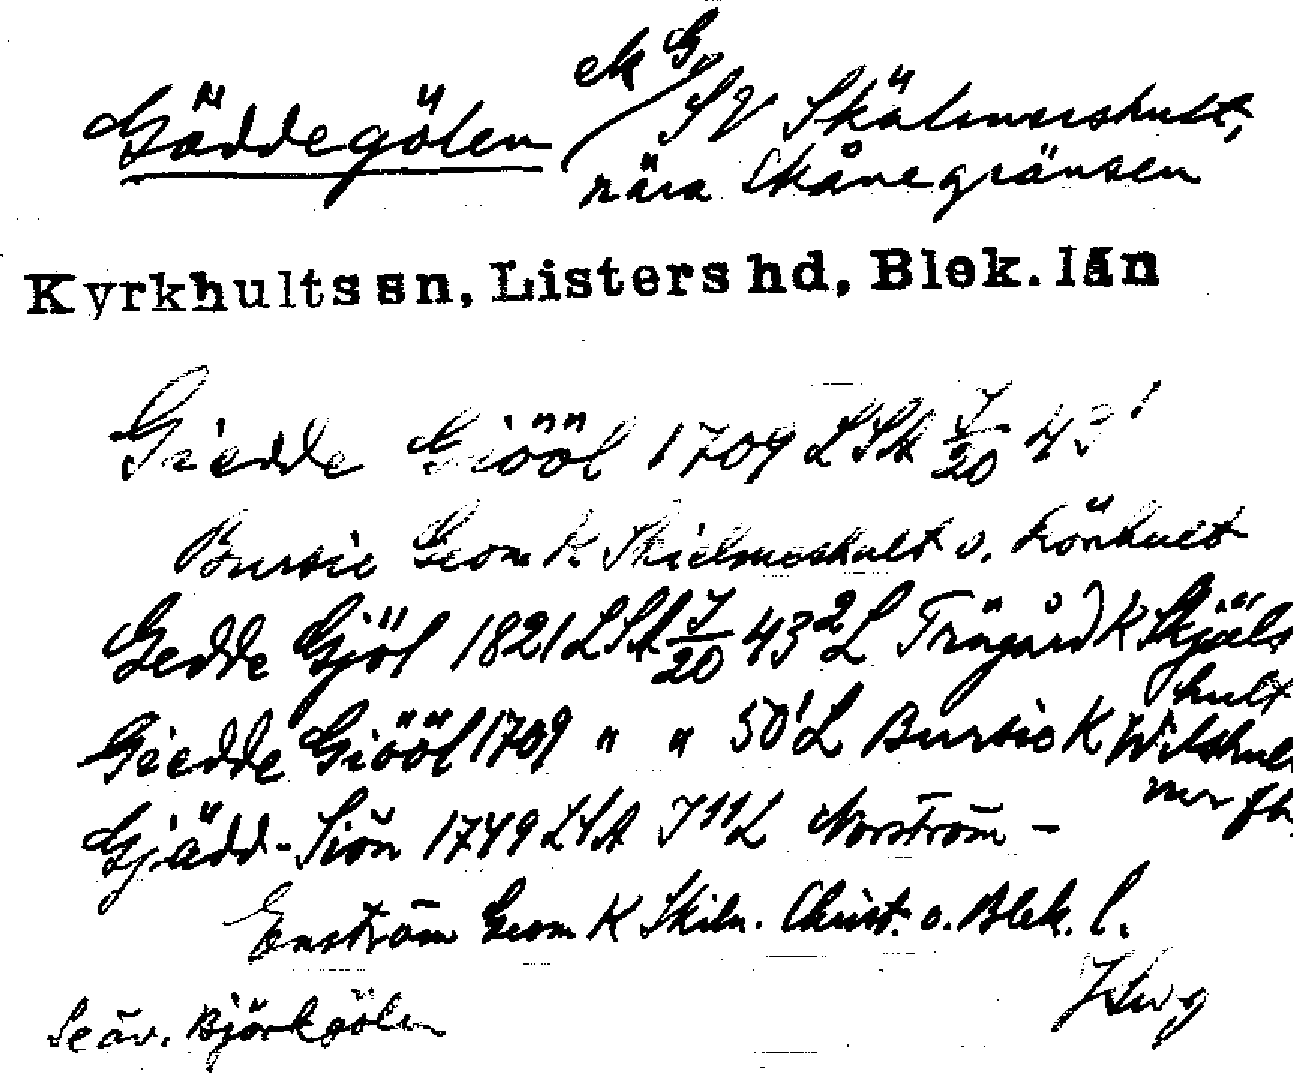 Gäddegölen / ek G,
SV Skälmershult,
nära Skånegränsen
Kyrkhults sn, Listers hd, Blek. län
Giedde Giööl 1709 LSA J/20 43¹
Bursie Geom K Skielmeshult o. Lönhult
Gedde Gjöl 1821 LSA J/20 43² L Trägård K Skjäls
hult
Giedde Giööl 1709 " " 50¹ L Bursie K Wilshul
Gjädd-Siön 1749 LSA J11 L Norström -
Enström Geom K Skiln. Christ. o. Blek. l.
Se äv. Björkgölen